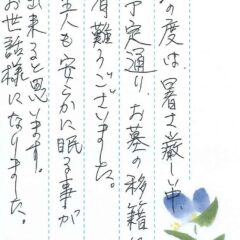 の度は暑さ厳しい中、
予定通り、お墓の移籍
有難うございました。
主人も安らかに眠る事が
出来ると思います。
お世話様になりました。